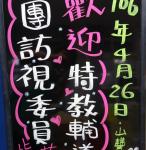 106年4月26日
歡迎特教輔導
團訪視委員